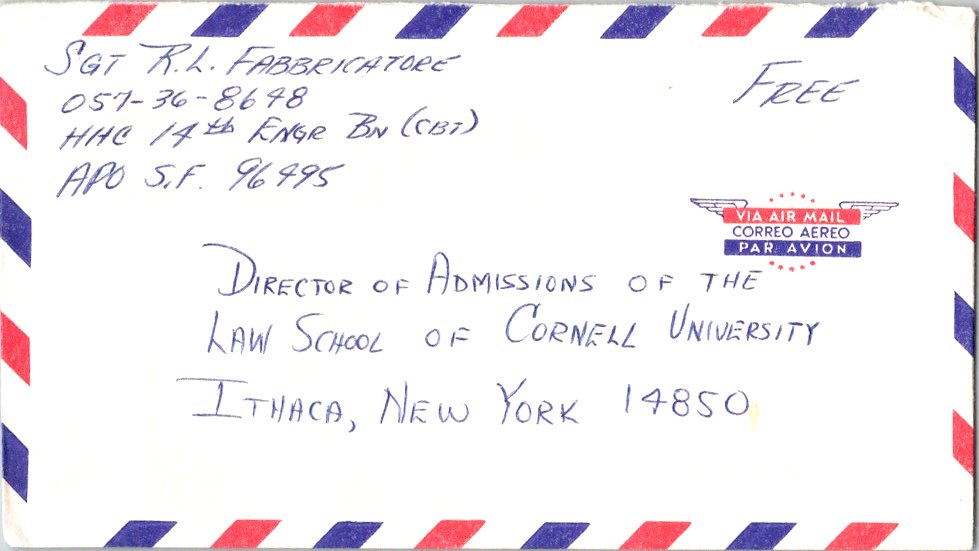 SGT R.L. FABBRICATORE
057-36-8648
HHC 14th ENGR BN (CBT)
APO S.F. 96495
FREE
VIA AIR MAIL
CORREO AEREO
PAR AVION
DIRECTOR OF ADMISSIONS OF THE
LAW SCHOOL OF CORNELL UNIVERSITY
ITHACA, NEW YORK 14850